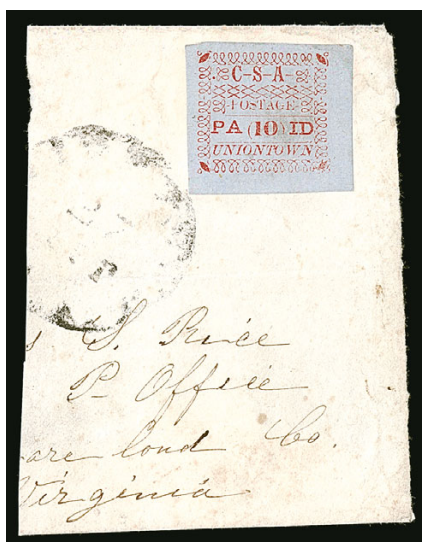 C-S-A-
POSTAGE
PA (10) ID
UNIONTOWN
S. Price
P- Office
Co.
Virginia